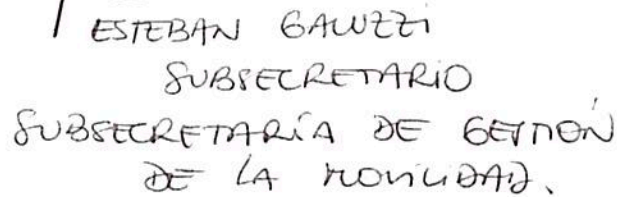 ESTEBAN GALUZZI
SUBSECRETARIO
SUBSECRETARÍA DE GESTIÓN
DE LA MOVILIDAD.